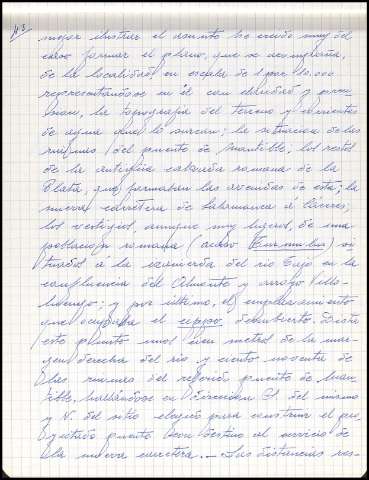 mejor ilustrar el asunto he creido muy del
caso formar el plano, que se acompaña,
de la localidad en escala de 1 por 10.000
representandose en él con claridad y
la topografia del terreno y corrientes
de agua que lo surcan; la situacion de las
ruinas del puente de Mantible; los restos
de la antigua calzada romana de la
Plata, que formaban las avenidas de esta; la
nueva carretera de Salamanca á Cáceres;
los vestigios, aunque muy ligeros, de una
poblacion romana (acaso Turmulus) si-
tuados á la izquierda del rio Tajo en la
confluencia del Almonte y arroyo Villo-
luengo; y por último, el emplazamiento
que ocupaba el cippo descubierto. Dista
este punto unos cien metros de la mar-
gen derecha del rio y ciento noventa de
las ruinas del referido puente de Man-
tible, hallándose en direccion del mismo
y N. del sitio elegido para construir el pro-
yectado puente con destino al servicio de
la nueva carretera. — Las distancias res-